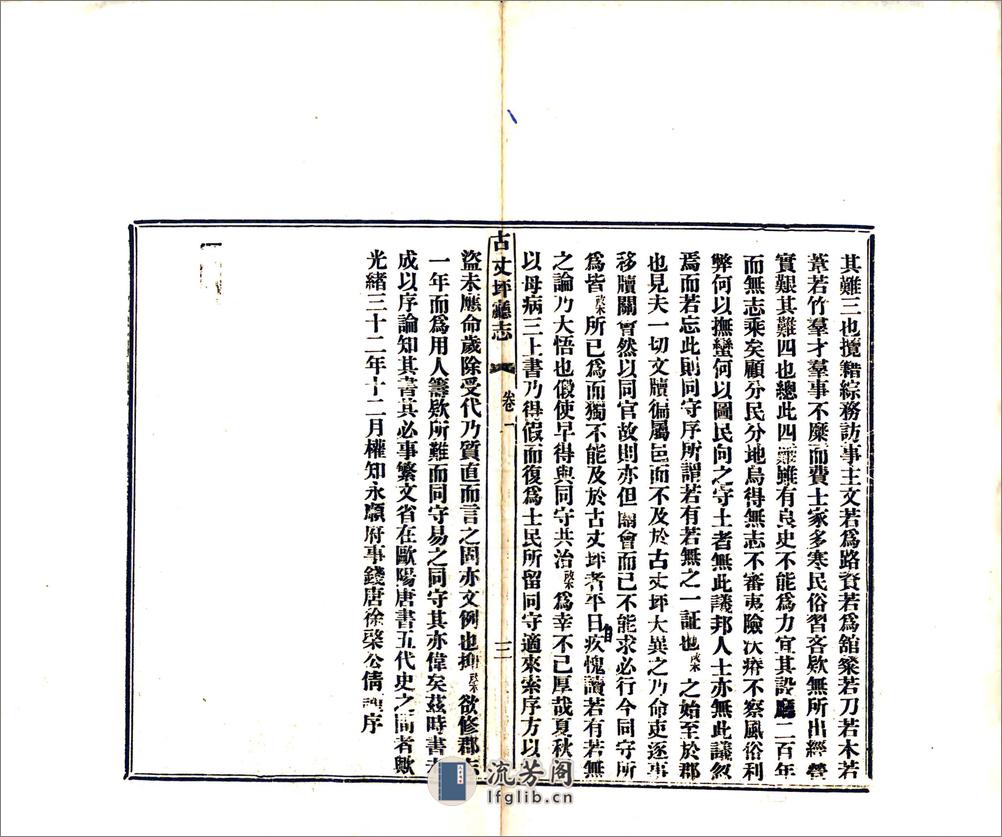 其難三也攬轄綜務訪事主文若爲路資若爲舘粲若刀若木若
葦若竹羣才羣事不糜而費土家多寒民俗習吝欵無所出經營
實艱其難四也總此四難雖有良史不能爲力宜其設廳二百年
而無志乘矣顧分民分地烏得無志不審夷險次瘠不察風俗利
弊何以撫蠻何以圖民向之守土者無此議邦人士亦無此議忽
焉而若忘此則同守序所謂若有若無之一証也啟木之始至於郡
也見夫一切文牘徧屬邑而不及於古丈坪大異之乃命吏逐事
移牘關會然以同官故則亦但關會而已不能求必行今同守所
爲皆啟木所已爲而獨不能及於古丈坪者平日自疚愧讀若有若無
之論乃大悟也假使早得與同守共治啟木爲幸不已厚哉夏秋
以母病三上書乃得假而復爲士民所留同守適來索序方以
古丈坪廳志
卷一
三
盜未應命歲除受代乃質直而言之固亦文例也抑啟木欲修郡志
一年而爲用人籌欵所難而同守易之同守其亦偉矣茲時書未
成以序論知其書其必事繁文省在歐陽唐書五代史之間者歟
光緒三十二年十二月權知永順府事錢唐徐棨公倩謹序
流芳阁
lfglib.cn